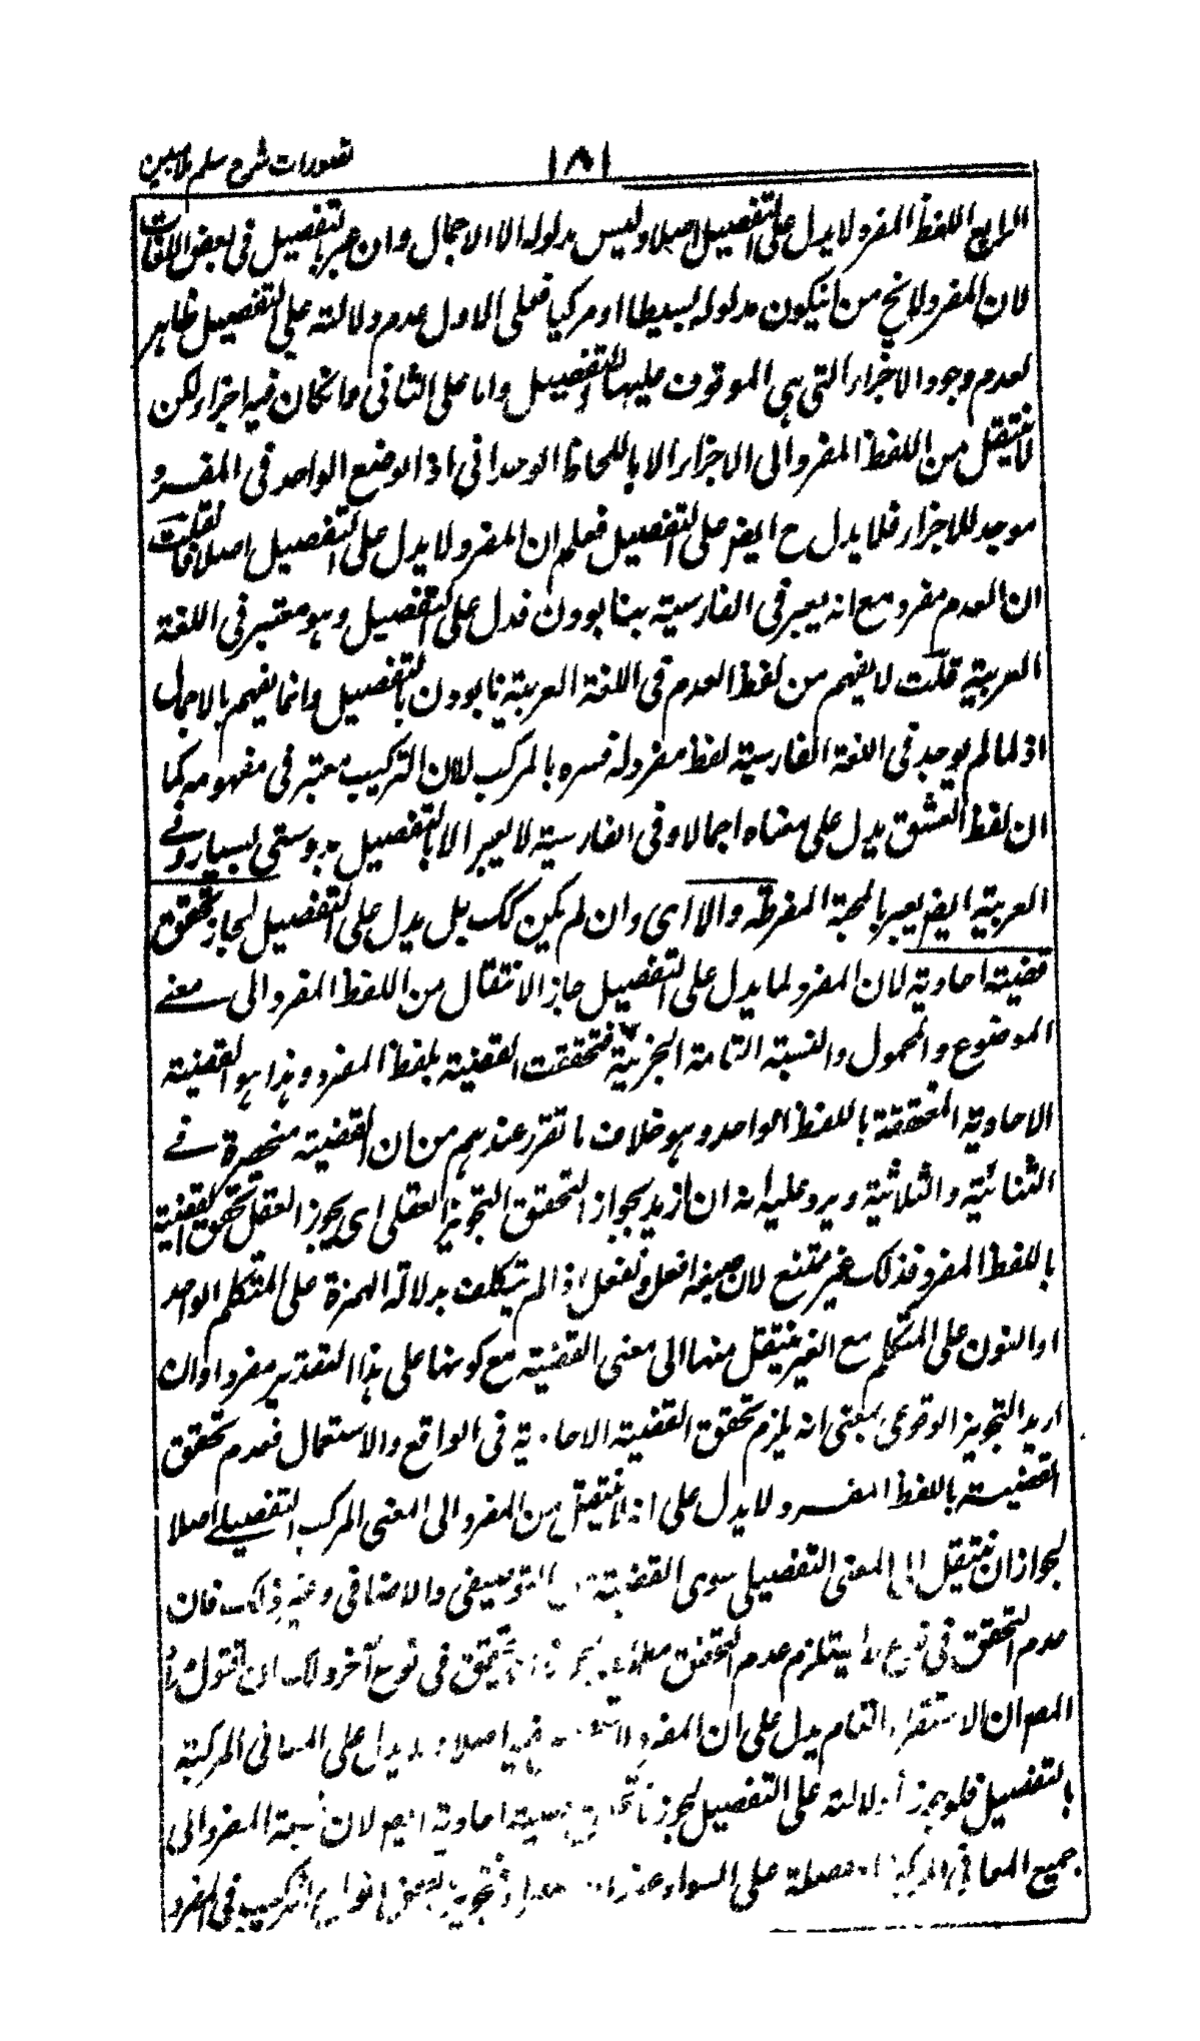 تصورات شرح سلم ملامبين
١٨١
الرابع اللفظ المفرد لا يدل على التفصيل اصلا وليس مدلوله الا الاجمال وان عبر بالتفصيل فى بعض اللغات
لان المفرد لا يخ من ان يكون مدلوله بسيطا او مركبا فعلى الاول عدم دلالته على التفصيل ظاهر
لعدم وجود الاجزاء التى هى الموقوف عليها للتفصيل واما على الثانى فانكان فيه اجزاء لكن
لا ينتقل من اللفظ المفرد الى الاجزاء الا باللحاظ الوحدانى اذ الوضع الواحد فى المفرد
موحد للاجزاء فلا يدل ح ايضا على التفصيل فعلم ان المفرد لا يدل على التفصيل اصلا فان قلت
ان العدم مفرد مع انه يعبر فى الفارسية بنا بودن فدل على التفصيل وهو معتبر فى اللغة
العربية قلت لا يفهم من لفظ العدم فى اللغة العربية نا بودن بالتفصيل وانما يفهم بالاجمال
اذ لما لم يوجد فى اللغة الفارسية لفظ مفرد له فسره بالمركب لا لان التركيب معتبر فى مفهومه كما
ان لفظ العشق يدل على معناه اجمالا وفى الفارسية لا يعبر الا بالتفصيل بدوستى بسيار وفى
العربية ايضا يعبر بالمحبة المفرطة والا اى وان لم يكن كك بل يدل على التفصيل لجاز تحقق
قضية احادية لان المفرد لما يدل على التفصيل جاز الانتقال من اللفظ المفرد الى معنى
الموضوع والمحمول والنسبة التامة الخبرية فتحققت القضية بلفظ المفرد وهذا هو القضية
الاحادية المتحققة باللفظ الواحد وهو خلاف ما تقرر عندهم من ان القضية منحصرة فى
الثنائية والثلاثية ويرد عليه انه ان اريد بجواز التحقق التجويز العقلى اى يجوز العقل تحقق القضية
باللفظ المفرد فذلك غير ممتنع لان صيغة افعل ونفعل اذا لم يتكلف بدلالة الهمزة على المتكلم الواحد
او النون على المتكلم مع الغير ينتقل منها الى معنى القضية مع كونها على هذا التقدير مفردا وان
اريد التجويز الوقوعى بمعنى انه يلزم تحقق القضية الاحادية فى الواقع والاستعمال فعدم تحقق
القضية باللفظ المفرد لا يدل على انه لا ينتقل من المفرد الى المعنى المركب التفصيلى اصلا
لجواز ان ينتقل الى المعنى التفصيلى سوى القضية من التوصيفى والاضافى وغير ذلك فان
عدم التحقق فى نوع لا يستلزم عدم التحقق مطلقا يتحقق فى نوع آخر ولك ان تقول
المص ان الاستقراء التام يدل على ان المفرد اصلا يدل على المعانى المركبة
بالتفصيل فلو يجوز دلالته على التفصيل لجوز تحقق قضية احادية ايضا لان نسبة المفرد الى
جميع المعانى المركبة المفصلة على السواء بعض انواع التركيب فى المفرد